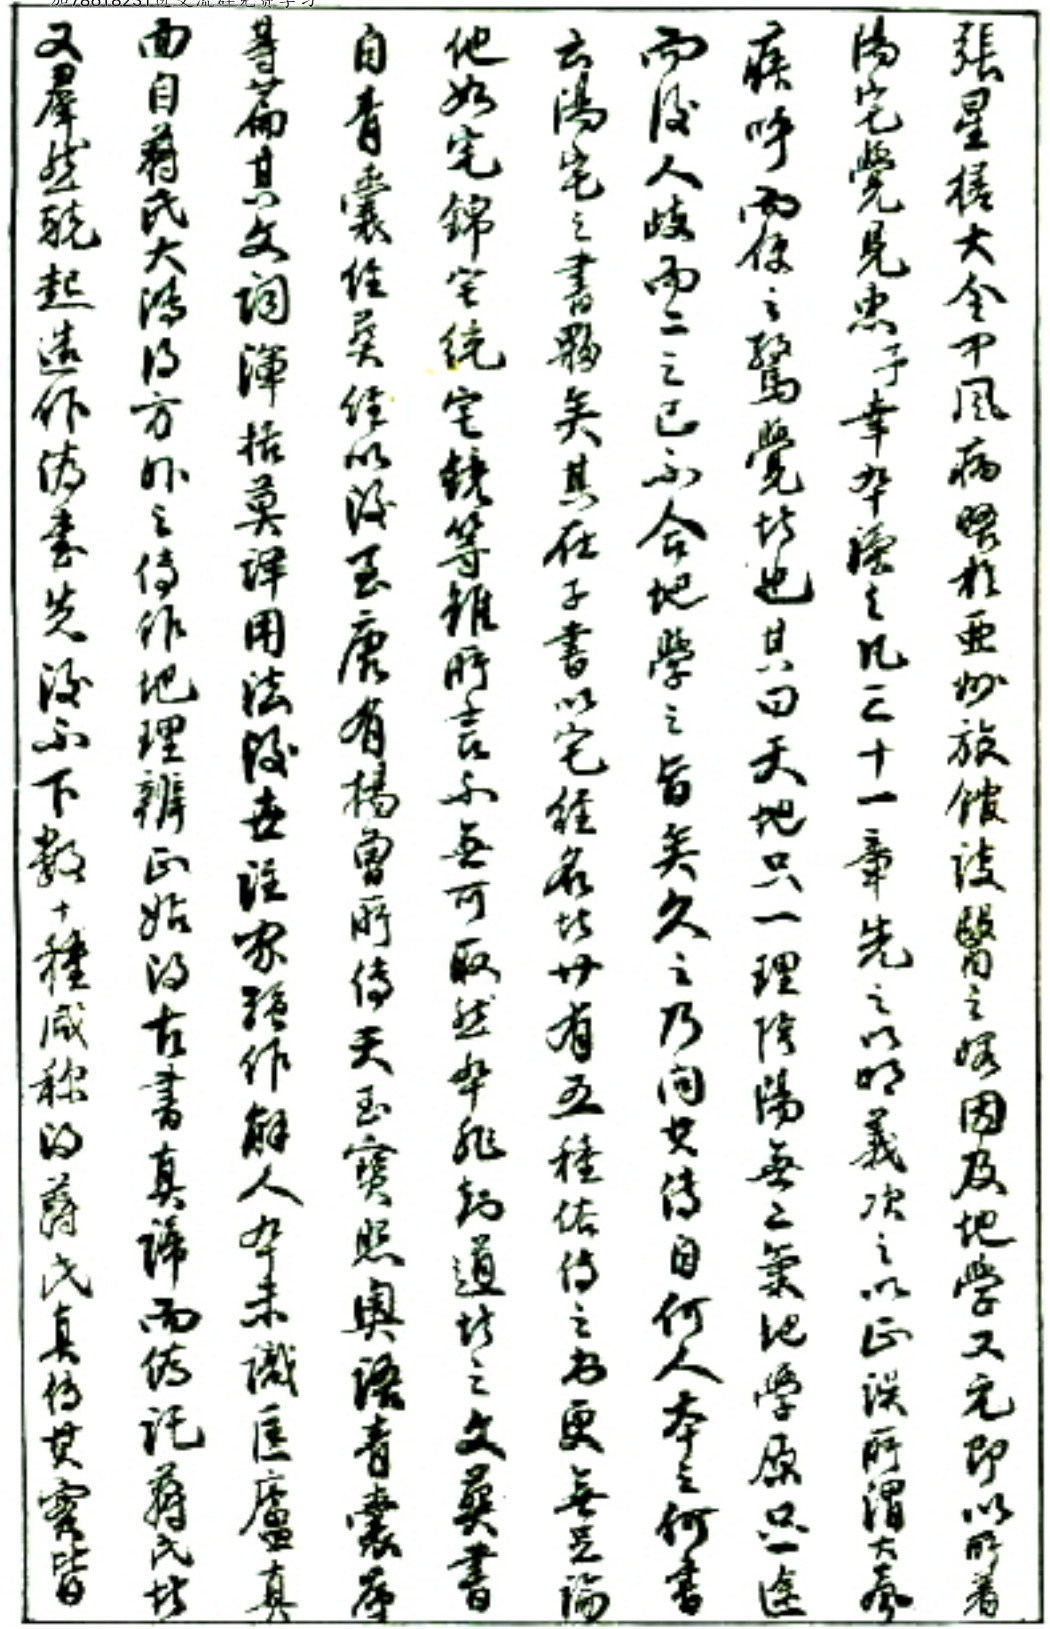 張星槎大令中風病晤於亞洲旅館談醫之暇因及地學又元即以所着
陽宅覺見惠予幸卒讀之凡三十一章先之以明義次之以正誤所謂大聲
疾呼而使之驚覺者也其曰天地只一理陰陽無二氣地學原只一途
而後人歧而二之已不合地學之旨矣久之乃问其傳自何人本之何書
云陽宅之書夥矣其在子書以宅經名者廿有五種俗傳之书更無足論
他如宅錦宅統宅鏡等雖所言不無可取然卒非知道者之文葬書
自青囊經葬經以後至唐有楊曾所傳天玉寶照奥語青囊序
等篇其文詞渾括莫詳用法後世註家强作解人卒未識匡廬真
面自蔣氏大鴻得方外之傳作地理辨正始得古書真諦而偽託蔣氏者
又羣然競起造作偽書先後不下數十種咸称得蔣氏真傳其實皆